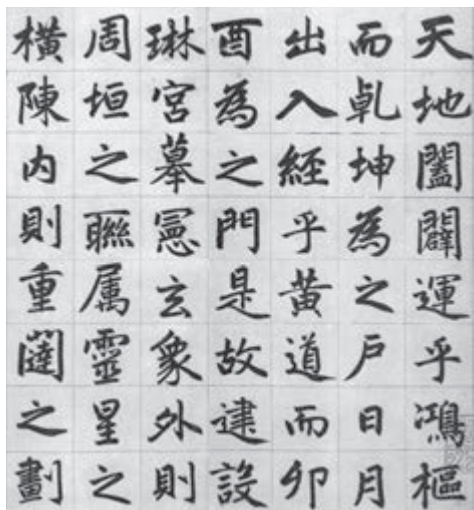 天地闔闢運乎鴻樞
而乹坤為之戶日月
出入經乎黄道而卯
酉為之門是故建設
琳宮摹憲玄象外則
周垣之聯属靈星之
橫陳内則重闥之劃